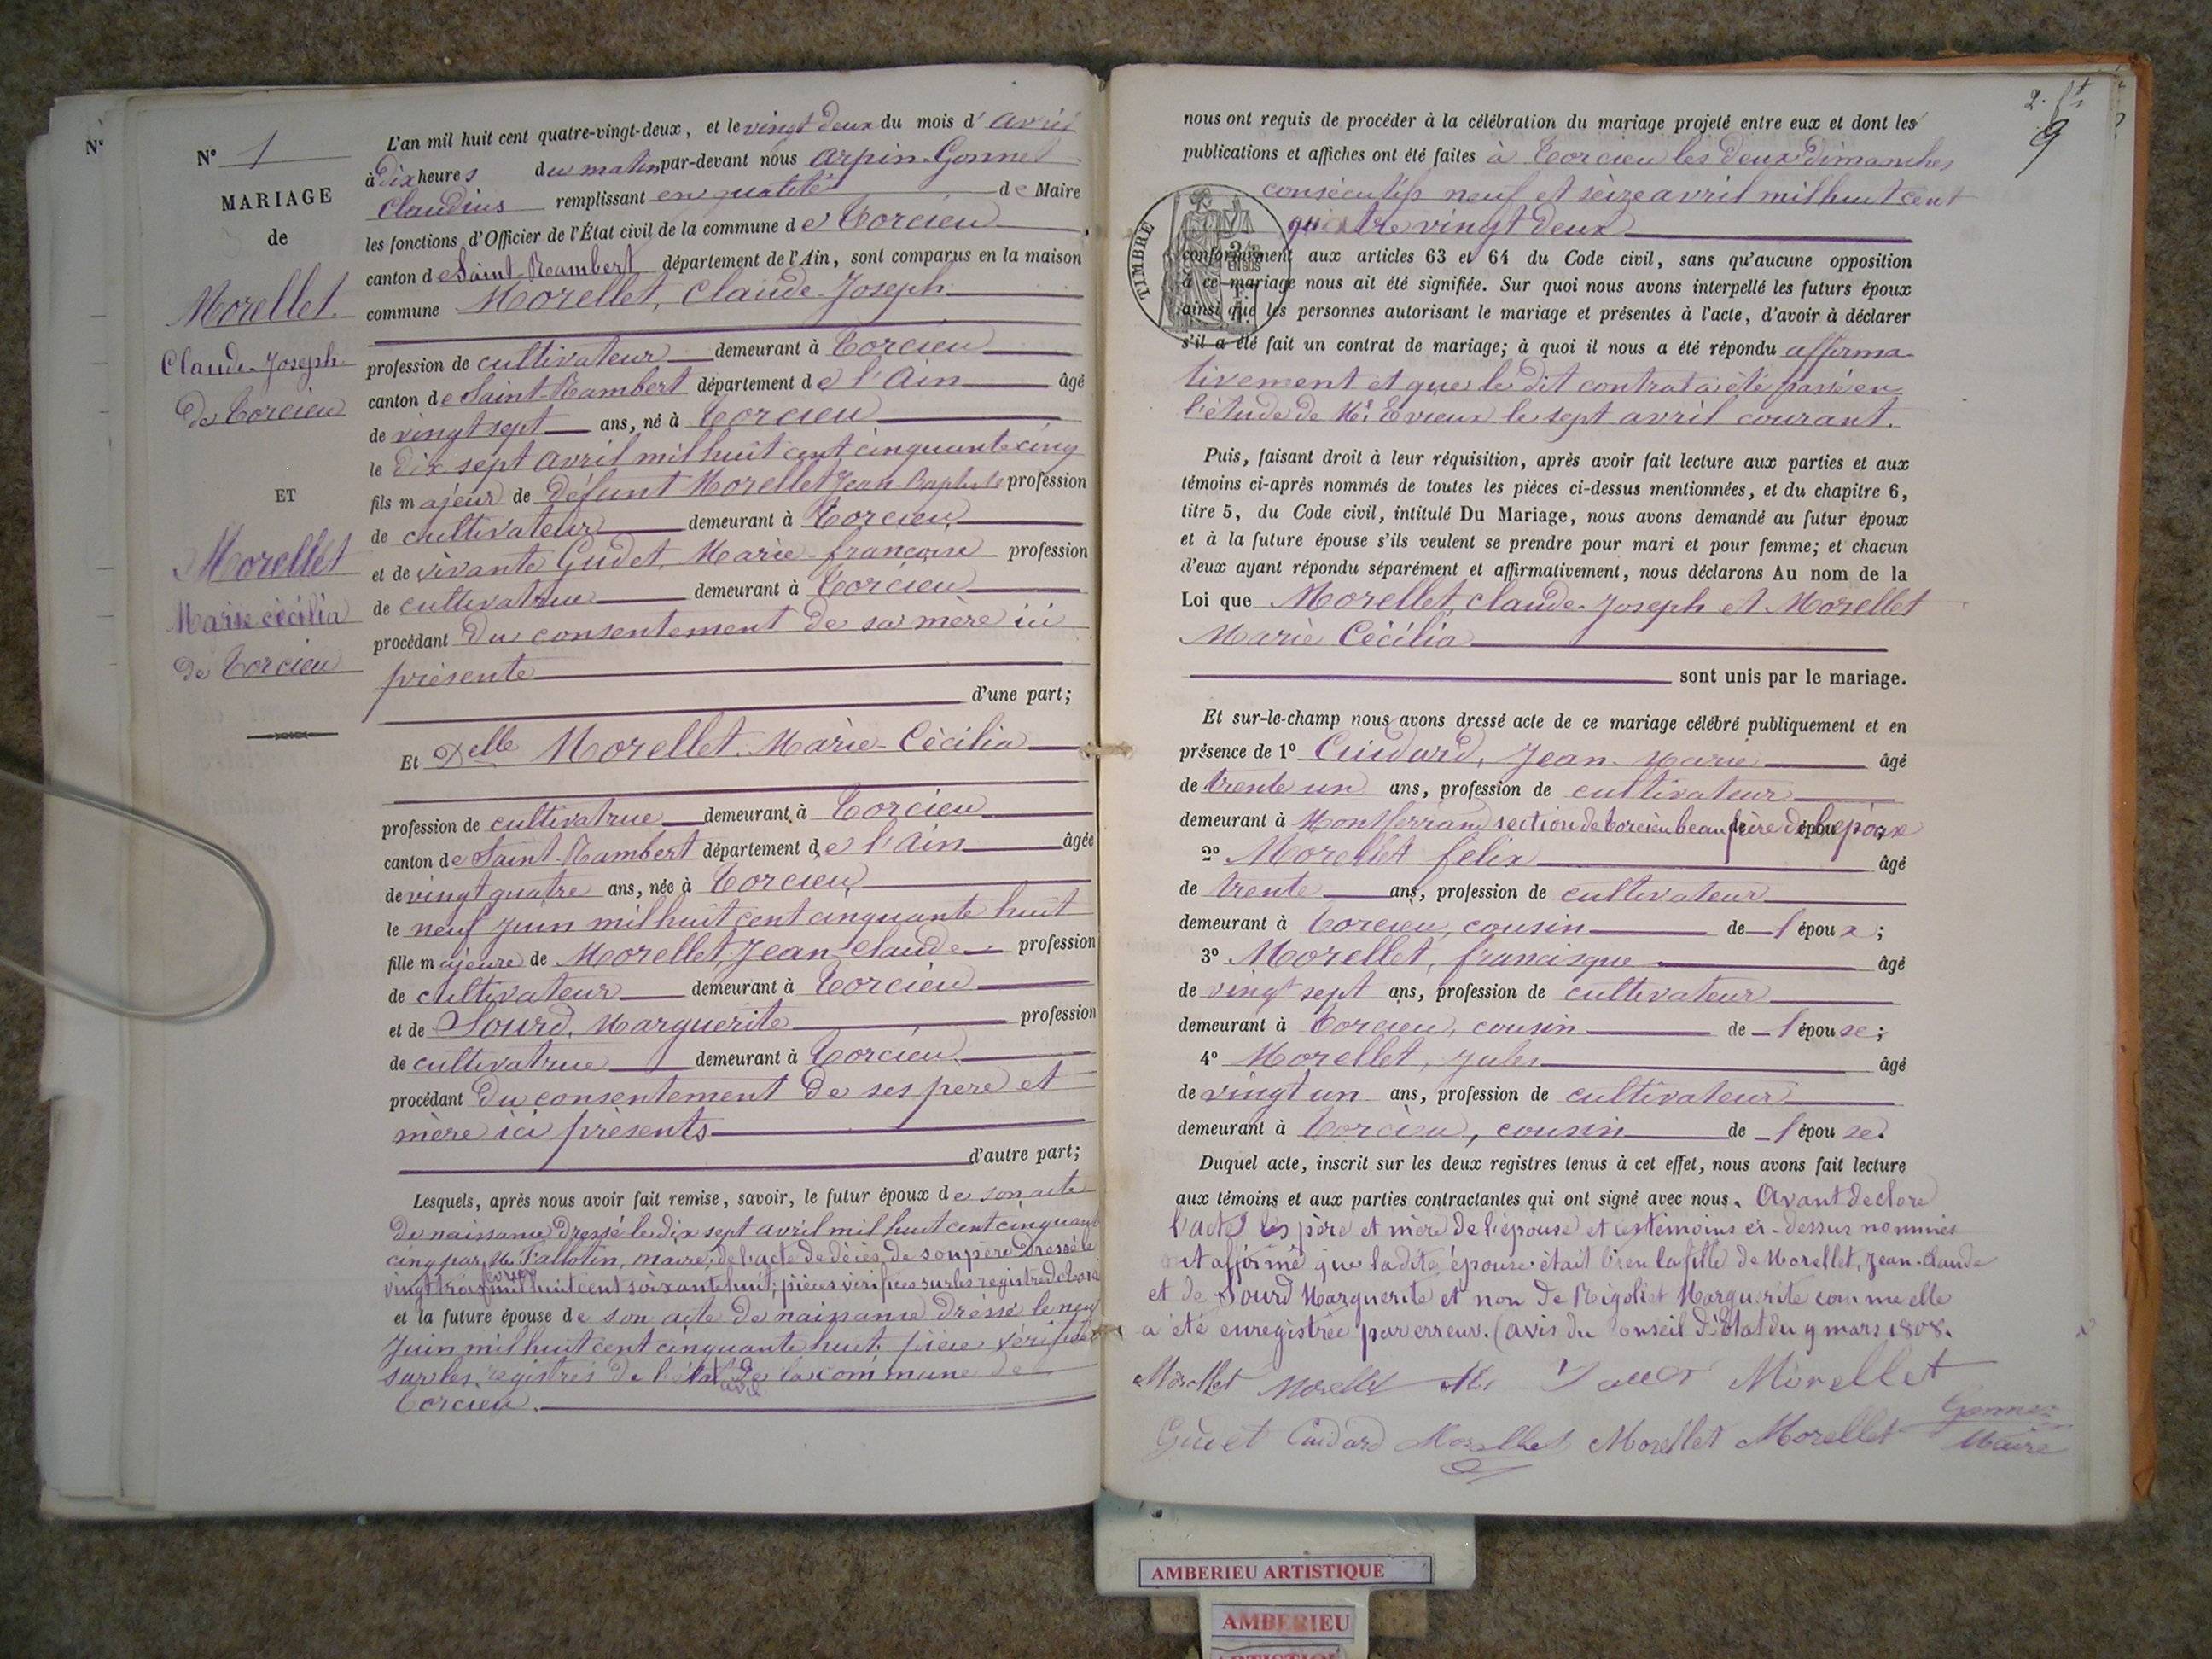 N°
N° 1
MARIAGE
de
Morellet
Claude-Joseph
de Torcieu
ET
Morellet
Marie Cécilia
de Torcieu
L'an mil huit cent quatre-vingt-deux, et le vingt deux du mois d'avril
à dix heures du matin par-devant nous Arpin-Gonnet
Claudius remplissant en qualité de Maire
les fonctions d'Officier de l'État civil de la commune de Torcieu
canton de Saint-Rambert département de l'Ain, sont comparus en la maison
commune Morellet, Claude-Joseph
profession de cultivateur demeurant à Torcieu
canton de Saint-Rambert département de l'Ain âgé
de vingt sept ans, né à Torcieu
le dix sept avril mil huit cent cinquante cinq
fils majeur de défunt Morellet Jean-Baptiste profession
de cultivateur demeurant à Torcieu
et de vivante Gudet, Marie-françoise profession
de cultivatrice demeurant à Torcieu
procédant du consentement de sa mère ici
présente
d'une part;
Et Delle Morellet, Marie-Cécilia
profession de cultivatrice demeurant à Torcieu
canton de Saint-Rambert département de l'Ain âgée
de vingt quatre ans, née à Torcieu
le neuf Juin mil huit cent cinquante huit
fille majeure de Morellet, Jean-Claude profession
de cultivateur demeurant à Torcieu
et de Sourd, Marguerite profession
de cultivatrice demeurant à Torcieu
procédant du consentement de ses père et
mère ici présents
d'autre part;
Lesquels, après nous avoir fait remise, savoir, le futur époux de son acte
de naissance dressé le dix sept avril mil huit cent cinquante
cinq par Mr Tallotin, maire; de l'acte de décès de son père dressé le
vingt trois février mil huit cent soixante huit; pièces vérifiées sur les registres de
et la future épouse de son acte de naissance dressé le neuf
Juin mil huit cent cinquante huit, pièce vérifiée
sur les registres de l'état civil de la commune de
Torcieu.
2. ft
9
nous ont requis de procéder à la célébration du mariage projeté entre eux et dont les
publications et affiches ont été faites à Torcieu les deux dimanches
consécutifs neuf et seize avril mil huit cent
quatre vingt deux
TIMBRE
conformément aux articles 63 et 64 du Code civil, sans qu'aucune opposition
à ce mariage nous ait été signifiée. Sur quoi nous avons interpellé les futurs époux
ainsi que les personnes autorisant le mariage et présentes à l'acte, d'avoir à déclarer
s'il a été fait un contrat de mariage; à quoi il nous a été répondu affirma-
tivement et que le dit contrat a été passé en
l'étude de Me Evieux le sept avril courant.
Puis, faisant droit à leur réquisition, après avoir fait lecture aux parties et aux
témoins ci-après nommés de toutes les pièces ci-dessus mentionnées, et du chapitre 6,
titre 5, du Code civil, intitulé Du Mariage, nous avons demandé au futur époux
et à la future épouse s'ils veulent se prendre pour mari et pour femme; et chacun
d'eux ayant répondu séparément et affirmativement, nous déclarons Au nom de la
Loi que Morellet, Claude-Joseph et Morellet
Marie Cécilia
sont unis par le mariage.
Et sur-le-champ nous avons dressé acte de ce mariage célébré publiquement et en
présence de 1° Cuidard, Jean-Marie âgé
de trente un ans, profession de cultivateur
demeurant à Montferrand section de Torcieu beau frère de l'époux
2° Morellet félix âgé
de trente ans, profession de cultivateur
demeurant à Torcieu, cousin de l'époux;
3° Morellet, francisque âgé
de vingt sept ans, profession de cultivateur
demeurant à Torcieu, cousin de l'épouse;
4° Morellet, Jules âgé
de vingt un ans, profession de cultivateur
demeurant à Torcieu, cousin de l'épouse.
Duquel acte, inscrit sur les deux registres tenus à cet effet, nous avons fait lecture
aux témoins et aux parties contractantes qui ont signé avec nous. Avant de clore
l'acte les père et mère de l'épouse et les témoins ci-dessus nommés
ont affirmé que la dite épouse était bien la fille de Morellet, Jean-Claude
et de Sourd Marguerite et non de Rigoliet Marguerite comme elle
a été enregistrée par erreur. (avis du Conseil d'Etat du 9 mars 1808.
Morellet Morellet Morellet
Gudet Cuidard Morellet Morellet Morellet Gonnet
Maire
AMBERIEU ARTISTIQUE
AMBERIEU
ARTISTIQUE